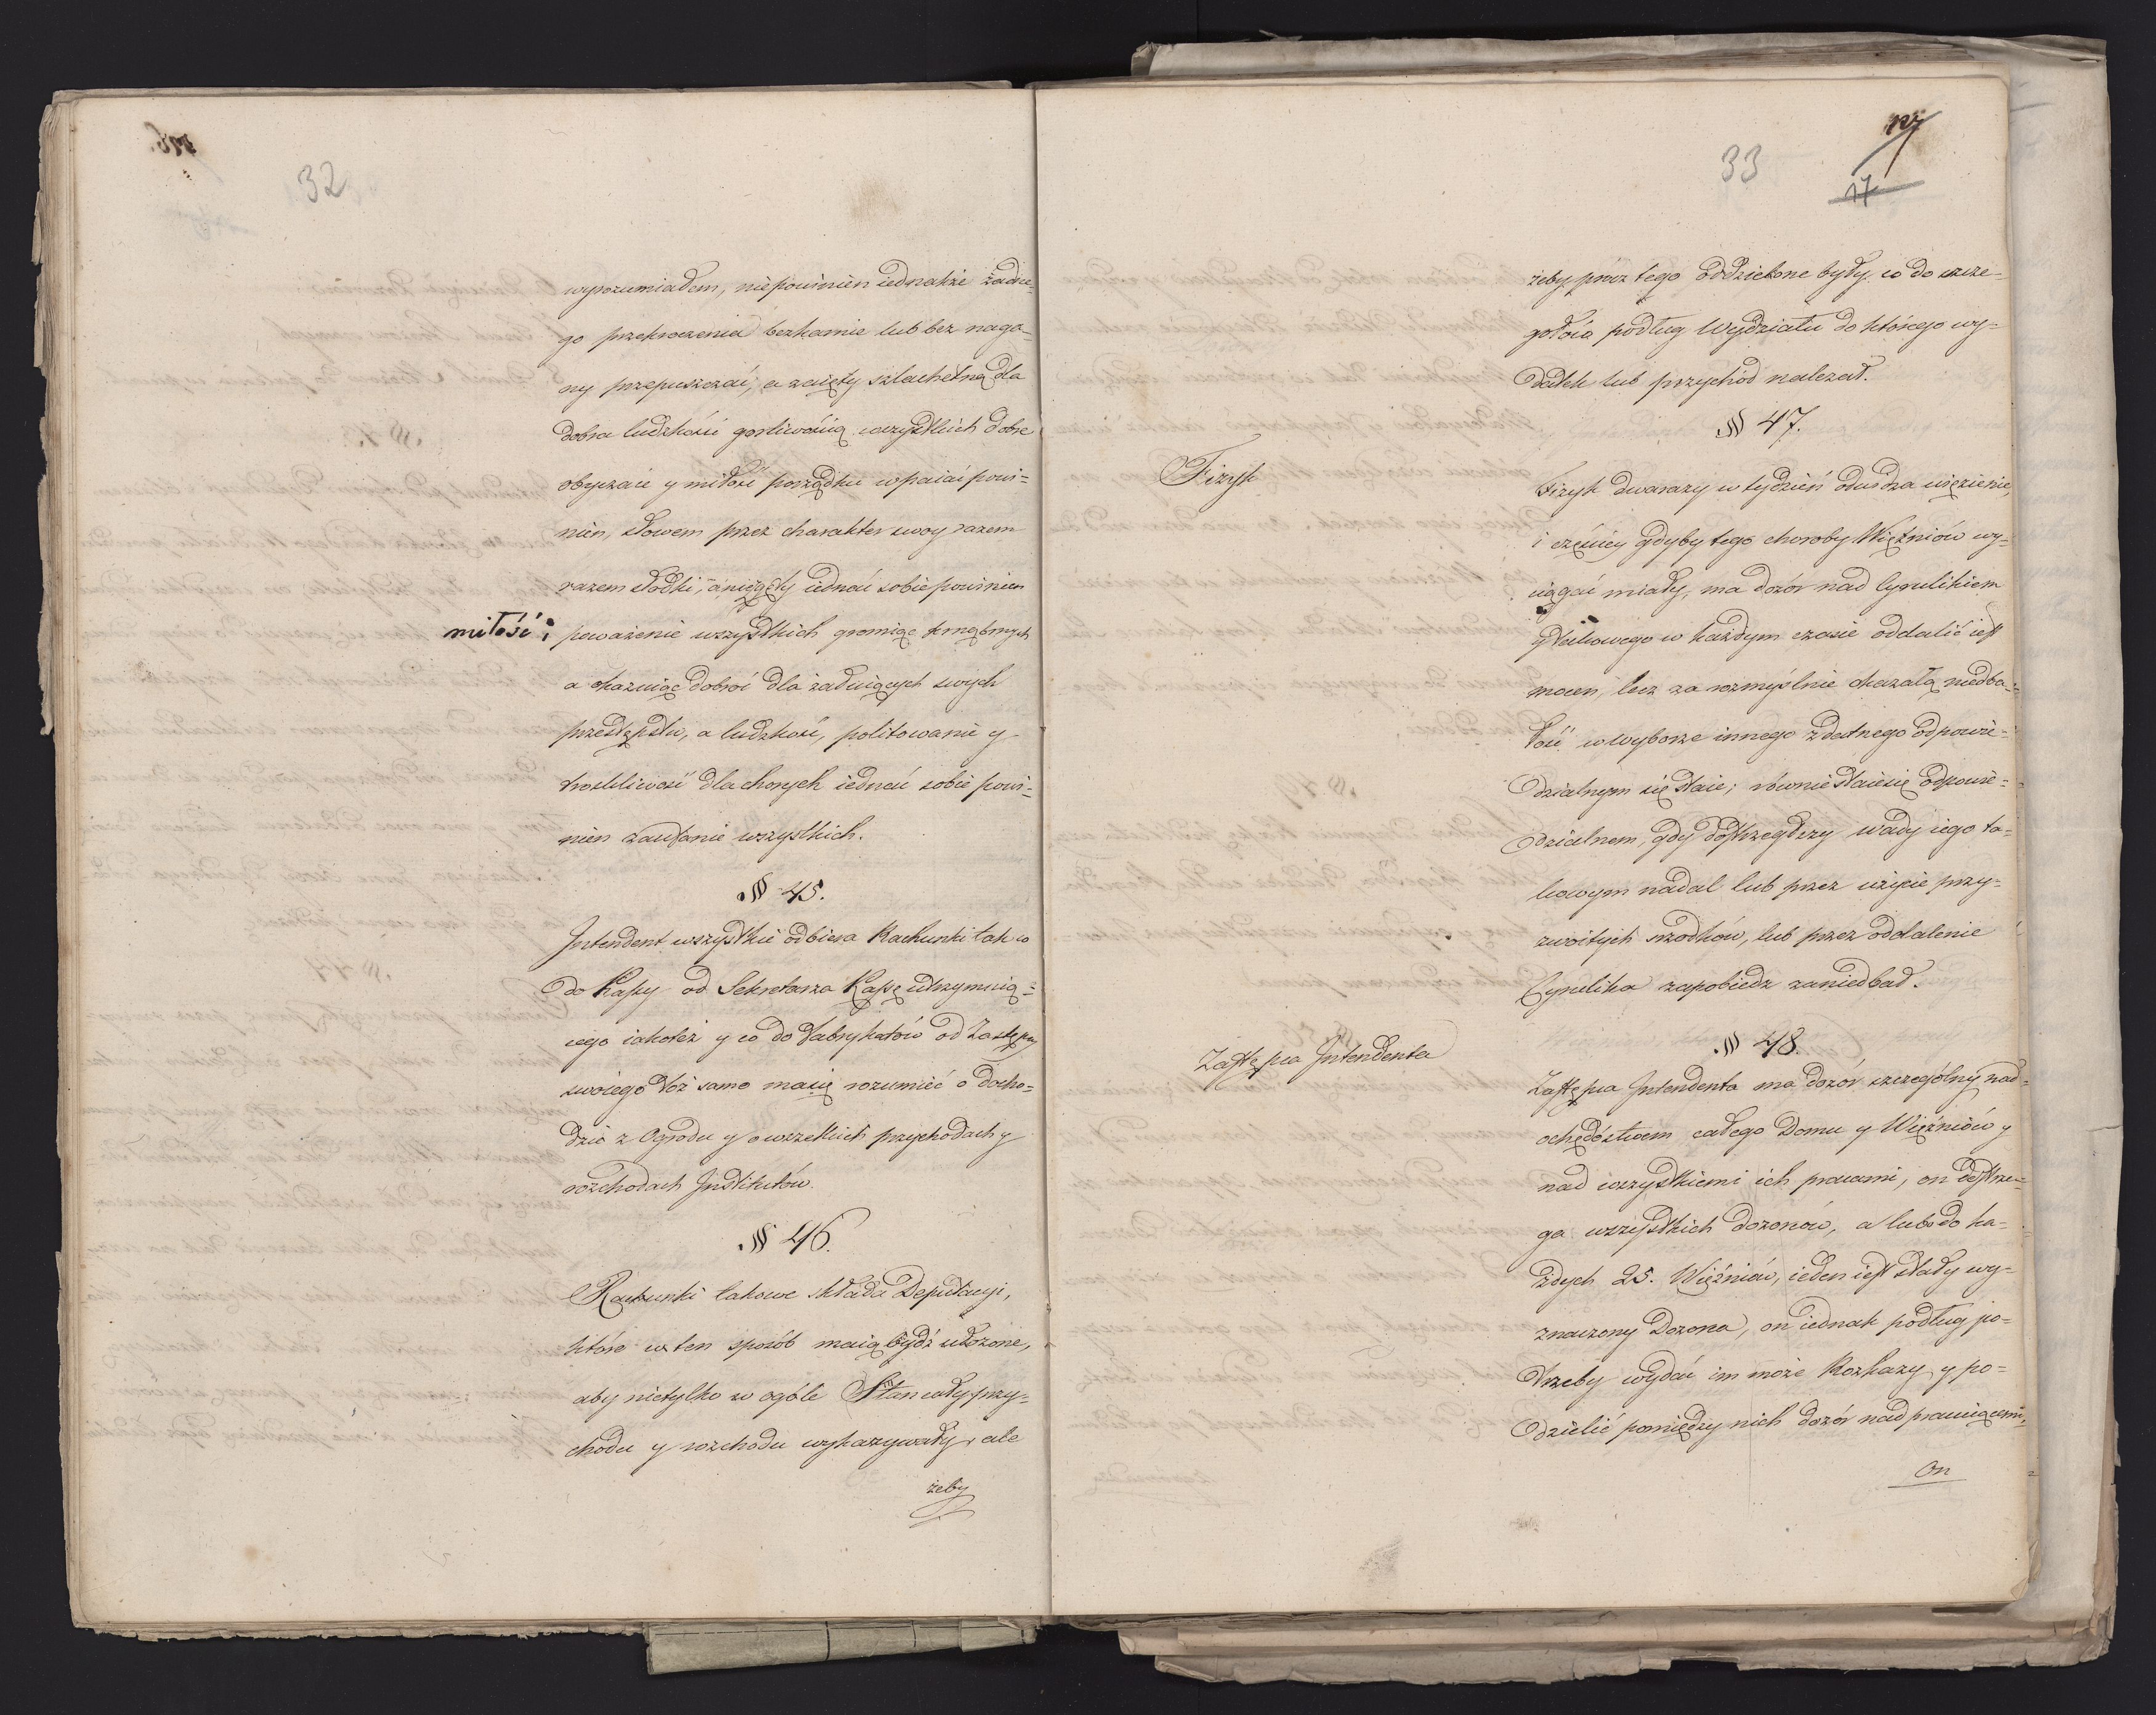 32
wyrozumiałem, nie powinien iednakże żadne-
go przekroczenia bezkarnie lub bez naga-
ny przepuszczać, a zaięty szlachetną dla
dobra ludzkości gorliwością wszystkich dobre
obyczaie y miłość porządku wpaiać powi=
nien, słowem przez charakter swoy razem
razem słodki, a nięgty iednać sobie powinien
miłość i poważenie wszystkich gromiąc krnąbrnych
a okazuiąc dobroć dla żałuiących swych
przestępstw, a ludzkość, politowanie y
troskliwość dla chorych iednać sobie powi=
nien zaufanie wszystkich.
§ 45.
Intendent wszystkie odbiera Rachunki tak co
do Kassy od Sekretarza Kassę utrzymuią=
cego iakoteż y co do fabrykatów od Zastępcy
swoiego toż samo ma się rozumieć o docho=
dzie z Ogrodu y o wszelkich przychodach y
rozchodach Instytutów.
§ 46.
Rachunki takowe składa Deputacyi,
które w ten sposób maią bydź ułożone,
aby nietylko w ogóle Stan cały przy=
chodu y rozchodu wykazywały, ale
żeby
33
17
żeby prócz tego oddzielone były co do szcze-
gółów podług Wydziału do którego wy=
datek lub przychód należał.
§ 47.
Fizyk
Fizyk dwa razy w tydzień odwidza więzienie,
i częściey gdyby tego choroby Więźniów wy=
ciągać miały, ma dozór nad Cyrulikiem
y takowego w każdym czasie oddalić iest
mocen, lecz za rozmyślnie okazałą niedba=
łość w wyborze innego zdatnego odpowie=
dzialnym się staie; równie staie się odpowie=
dzialnem, gdy dostrzegłszy wady iego ta=
kowym nadal lub przez użycie przy=
zwoitych srzodków, lub przez oddalenie
Cyrulika zapobiedz zaniedbał.
§ 48.
Zastępca Intendenta
Zastępca Intendenta ma dozór szczególny nad
ochędóstwem całego Domu y Więźniów y
nad wszystkiemi ich pracami, on dostrze=
ga wszystkich dozorców, a lubo do ka=
żdych 25. Więźniów, ieden iest stały wy=
znaczony Dozorca, on iednak podług po=
trzeby wydać im może Rozkazy y po=
dzielić pomiędzy nich dozór nad pracuiącemi,
On